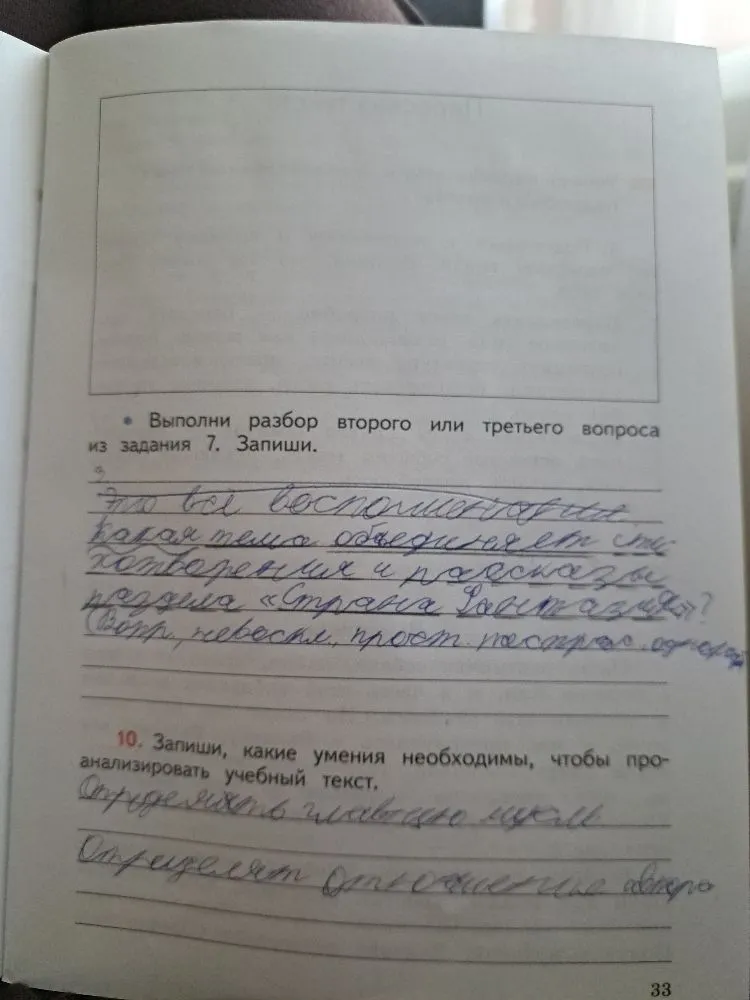 • Выполни разбор второго или третьего вопроса
из задания 7. Запиши.
3.
Это всё воспоминания.
Какая тема объединяет сти
хотворения и рассказы
раздела «Страна Фантазия»?
(Вопр., невоскл., прост. распрос.
10. Запиши, какие умения необходимы, чтобы про-
анализировать учебный текст.
Определять главную мысль
Определят отношение автора
33